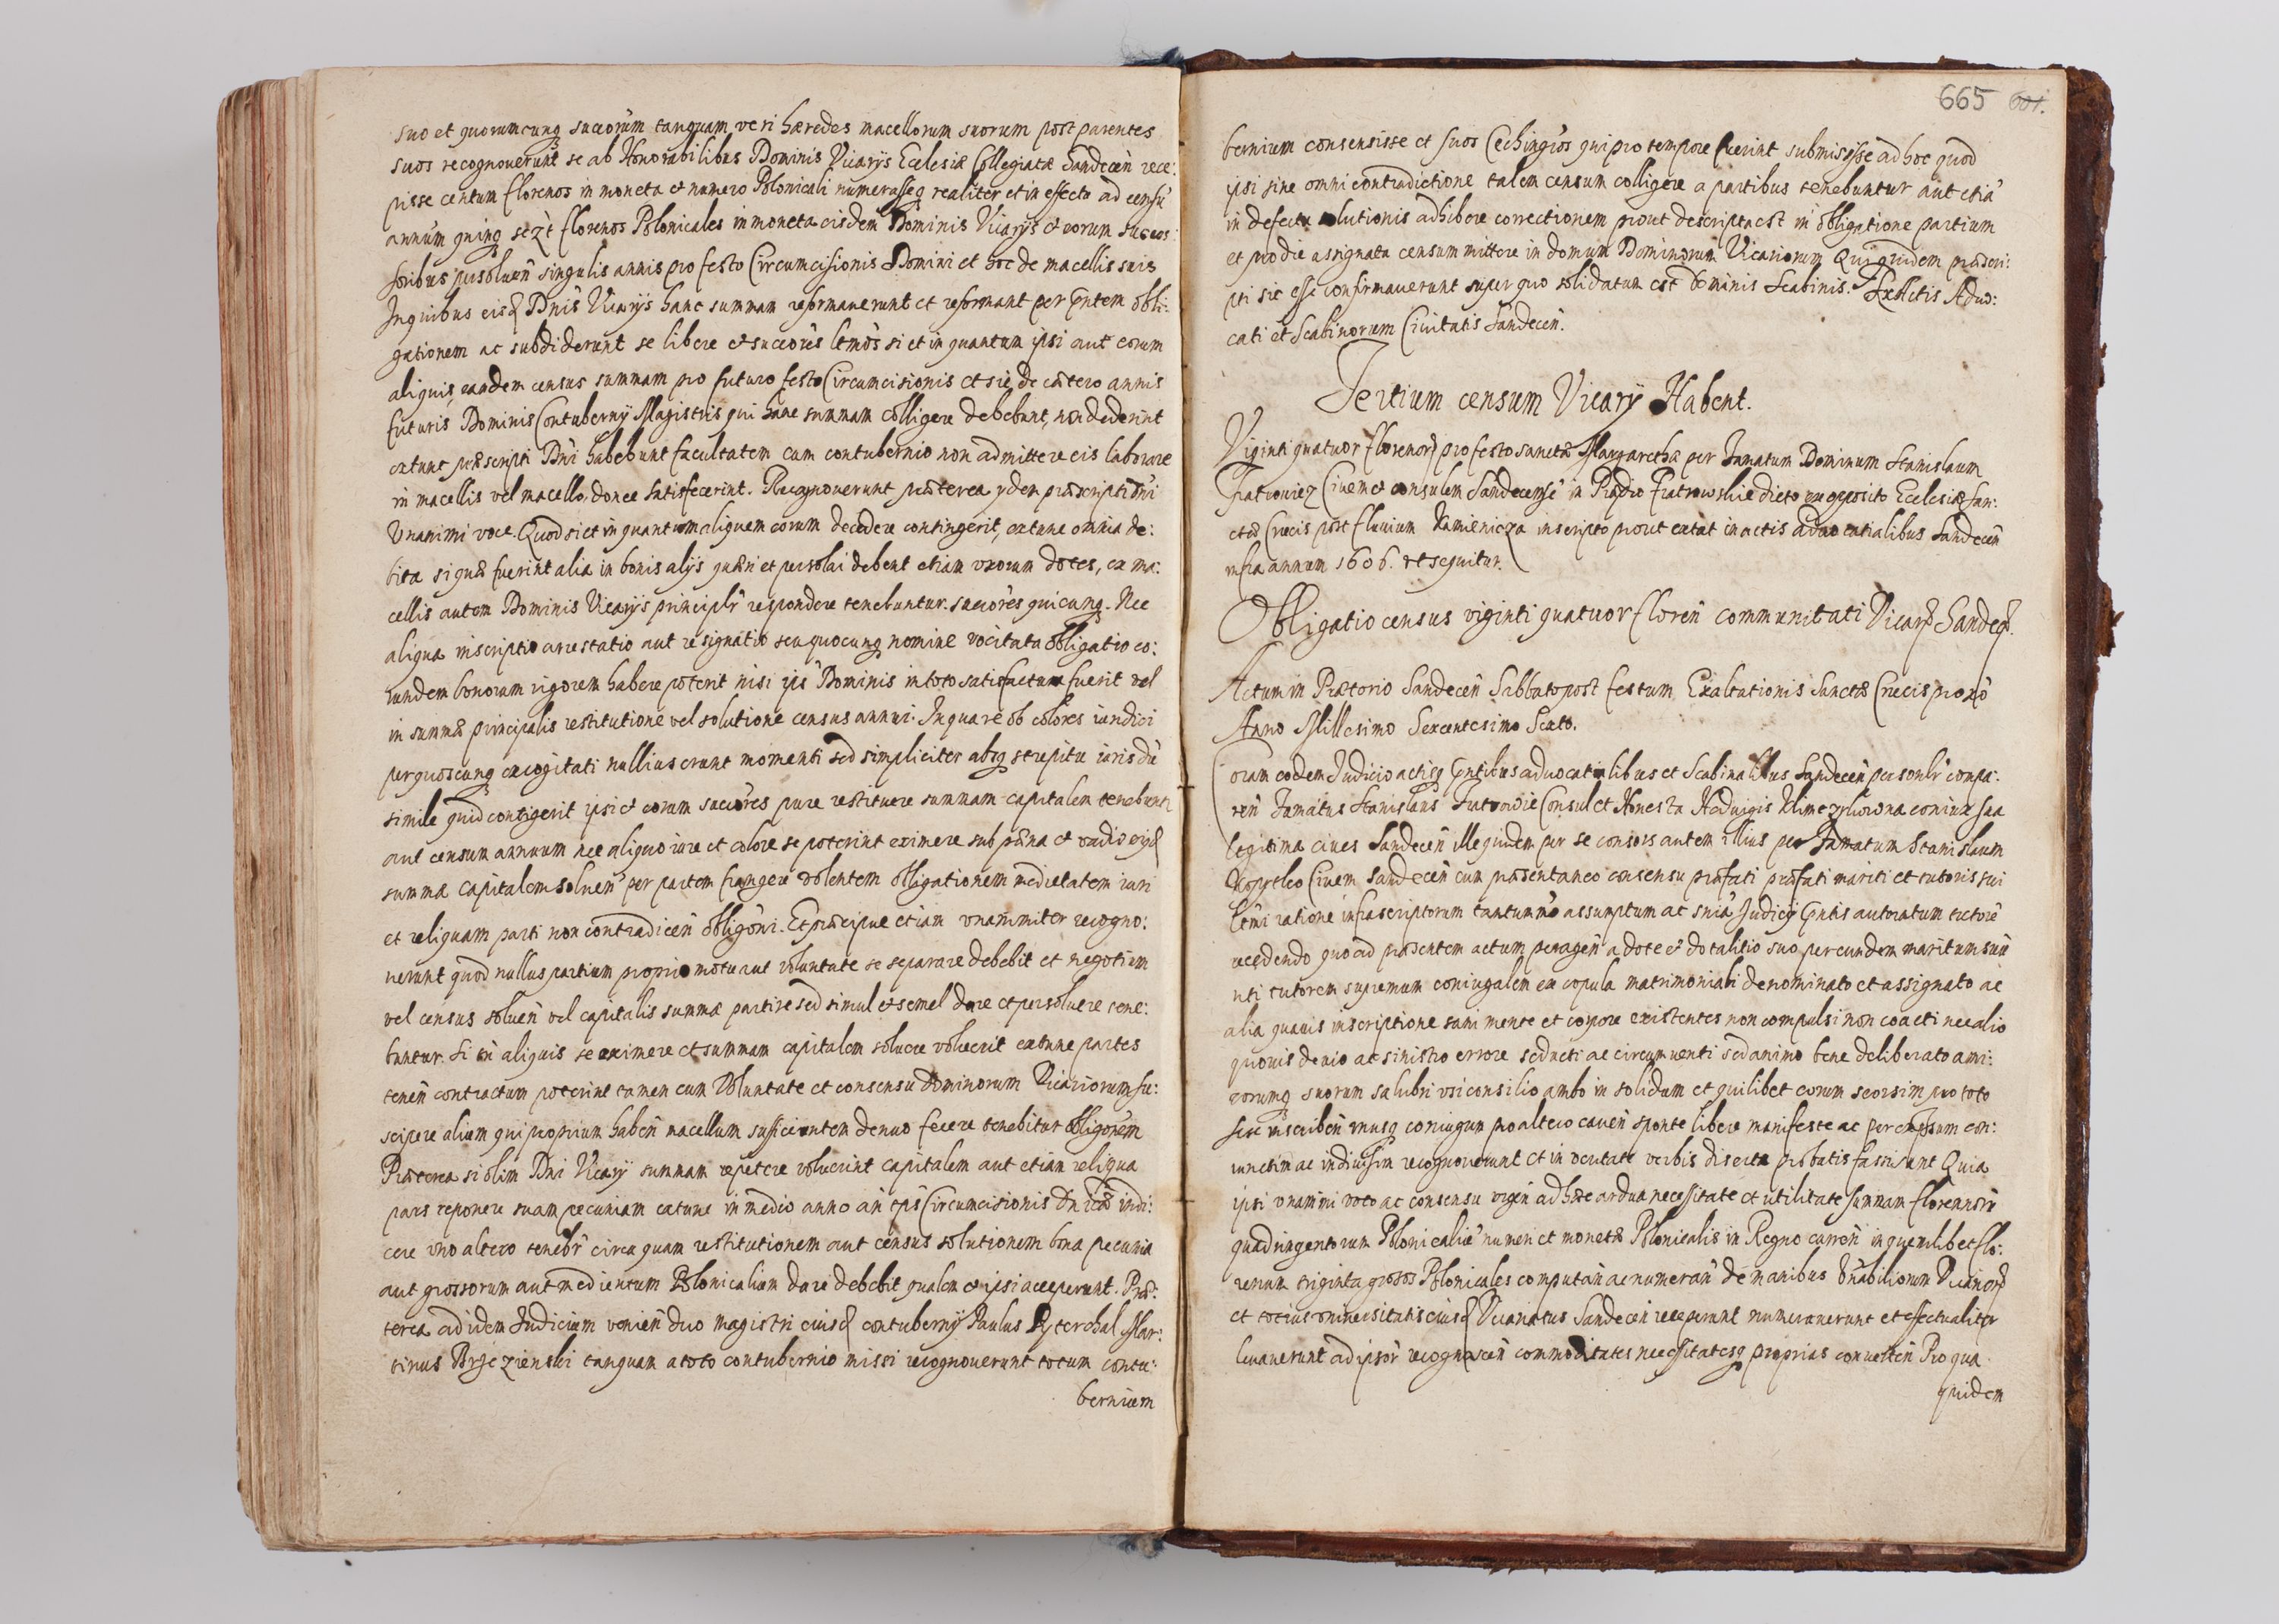 suo et quorumcunq succorum tanquam veri hæredes macellorum suorum post parentes
suos recognouerunt se ab Honorabilibus Dominis Vicarys Eclesiæ Collegiatæ Sandecen rece:
pisse centum florenos in moneta et numero Polonicali numerasseq realiter et in effectu ad censu
annum quinq florenos Polonicales in moneta eisdem Dominis Vicarys et eorum succes:
soribus persoluen singulis annis pro festo Circumcisionis Domini et hoc de macellis suis
In quibus eisd Dnis Vicarys hanc summam reformauerunt et reformant per pntem obli:
gationem ac subdiderunt se libere et succores ltmos si et in quantum ipsi aut eorum
aliquis eandem census summam pro futuro festo Circumcisionis et sic de cætero annis
futuris Dominis Contuberny Magistris qui hanc summam colligere debebunt, non dederint
extunc præscripti Dni habebunt facultatem cum contubernio non admittere eis laborare
in macellis vel macello, donec satisfecerint. Recognouerunt præterea ydem præscripti
Vnanimi voce. Quod si et in quantum aliquem eorum decedere contingerit, extunc omnia de:
bita si quæ fuerint alia in bonis alys quæri et persolui debent etiam vxorum dotes, ex ma:
cellis autem Dominis Vicarys principlr respondere tenebuntur succores quicunq. Nec
aliqua inscriptio arrestatio aut resignatio seu quocunq nomine vocitata obligatio eo:
rundem bonorum rigorem habere poterit nisi ips Dominis in toto satisfactum fuerit vel
in summæ principalis restitutione vel solutione census annui. In qua re ob colores iuridici
per quoscunq excogitati nullius erunt momenti sed simpliciter absq strepitu iuris du
simile quid contigerit ipsi et eorum succores pure restituere summam capitalem tenebunt
aut censum annuum nec aliquo iure et colore se poterint eximere sub pæna et vadio
summæ capitalem soluen per partem frangere volentem obligationem medietatem iuri
et reliquam parti non contradicen obligoni. Et præcipue etiam vnanimiter recogno:
uerunt quod nullus partium proprio motu aut voluntate se separare debebit et negotium
vel census soluen vel capitalis summæ partire sed simul et semel dare et persoluere tene:
buntur. Si tn aliquis se eximere et summam capitalem soluere voluerit extunc partes
tenen contractum poterint tamen cum voluntate et consensu Dominorum Vicariorum su:
scipere alium qui proprium haben macellum sufficientem denuo facere tenebitur obligonem
Præterea si olim Dni Vicary summam repetere voluerint capitalem aut etiam reliqua
pars reponere suam pecuniam extunc in medio anno an Circumcisionis indi:
cere vno altero tenebr circa quam restitutionem aut census solutionem bona pecunia
aut grossorum aut medientum Polonicalium dare debebit qualem et ipsi acceperunt. Præ:
terea ad idem Iudicium venien duo magistri eiusd contuberny Paulus Pyterchal Mar:
tinus Brzezienski tanquam a toto contubernio missi recognouerunt totum contu:
bernium
665 601.
bernium consensisse et suos Cechingros qui pro tempore fuerint submisisse ad hoc quod
ipsi sine omni contradictione talem censum colligere a partibus tenebuntur aut etia
in defectu solutionis adhibere correctionem prout descripta est in obligatione partium
et pro die assignata censum mittere in domum Dominorum Vicariorum Qui quidem præscri:
pti sic esse confirmauerunt super quo solidatum est Dominis Scabinis. Ex Actis Aduo:
cati et Scabinorum Ciuitatis Sandecen.
Tertium censum Vicary Habent.
Viginti quatuor florenor pro festo sanctæ Margarethæ per Famatum Dominum Stanislaum
Fratrowicz Ciuem et consulem Sandecense in Prædio Fratrowskie dicto ex opposito Eclesiæ San:
ctæ Crucis post fluuium Kamienicza inscripto prout extat in actis aduocatialibus Sandecen
infra annum 1606. vt sequitur.
Obligatio census viginti quatuor floren communitati Vicar Sandec.
Actum in Prætorio Sandecen Sabbato post festum Exaltationis Sanctæ Crucis proxo
Anno Millesimo Sexcentesimo Sexto.
Coram eodem Iudicio actisq pntibus aduocatialibus et Scabinalibus Sandecen personlr compa:
ren Famatus Stanislaus Fratrowic Consul et Honesta Heduigis Klimczykowna coniux sua
legitima ciues Sandecen ille quidem per se consors autem illius per Famatum Stanislaum
Kopytko Ciuem Sandecen cum præsentaneo consensu præfati præfati mariti et tutoris sui
ltmi ratione infrascriptorum tantummo assumptum ac snia Iudicy pntis autoratum tutore
recedendo quoad præsentem actum peragen a dote et dotalitio suo per eundem maritum suu
uti tutorem supremum coniugalem ex copula matrimoniali denominato et assignato ac
alia quauis inscriptione sani mente et corpore existentes non compulsi non coacti nec alio
quouis deuio ac sinistro errore seducti ac circumuenti sed animo bene deliberato ami:
corumq suorum salubri vsi consilio ambo in solidum et quilibet eorum seorsim pro toto
sese inscriben vnusq coniugum pro altero cauen sponte libere manifeste ac per expssum con:
iunctim ac indiuisim recognouerunt et in veritate verbis disertæ probatis fassi sunt Quia
ipsi vnanimi voto ac consensu vrgen ad hæc ardua necessitate et vtilitate summam florenoru
quadringentorum Polonicalie numeri et monetæ Polonicalis in Regno curren in quemlibet flo:
renum triginta grosos Polonicales computan ac numeran de manibus Vnabilioum Vicarior
et totius vniuersitatis eiusd Vicariatus Sandecen receperunt numerauerunt et effectualiter
leuauerunt ad ipsor recognoscen commoditates necessitatesq proprias conuerten Pro qua
quidem